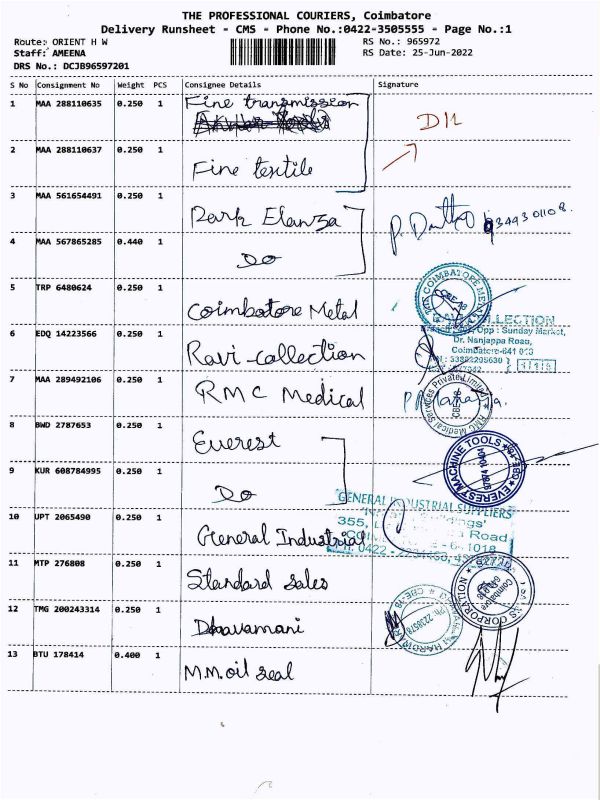 THE PROFESSIONAL COURIERS, Coimbatore
Delivery Runsheet - CMS - Phone No.:0422-3505555 - Page No.:1
Route: ORIENT H W
RS No.: 965972
Staff: AMEENA
RS Date: 25-Jun-2022
DRS No.: DCJB96597201
S No Consignment No Weight PCS Consignee Details Signature
1 MAA 288110635 0.250 1 Fine transmission
2 MAA 288110637 0.250 1 Fine textile
3 MAA 561654491 0.250 1 Park Elanza
4 MAA 567865285 0.440 1 Do
5 TRP 6480624 0.250 1 Coimbatore Metal
6 EDQ 14223566 0.250 1 Ravi collection
7 MAA 289492106 0.250 1 RMC Medical
8 BWD 2787653 0.250 1 Everest
9 KUR 608784995 0.250 1 Do
10 UPT 2065490 0.250 1 General Industrial
11 MTP 276808 0.250 1 Standard Sales
12 TMG 200243314 0.250 1 Dhavamani
13 BTU 178414 0.400 1 M.M.oil seal
COIMBATORE METAL
CBE-18
COLLECTION
Opp : Sunday Market,
Dr. Nanjappa Road,
Coimbatore-641 018
RMC Medical Services Private Limited
EVEREST MACHINE TOOLS
GENERAL INDUSTRIAL SUPPLIERS
355,
Road
CORPORATION
CBE-18